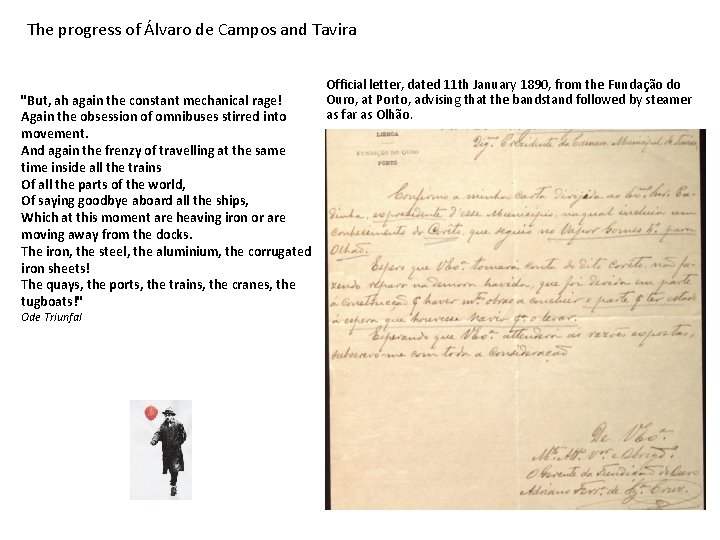 The progress of Álvaro de Campos and Tavira
"But, ah again the constant mechanical rage!
Again the obsession of omnibuses stirred into
movement.
And again the frenzy of travelling at the same
time inside all the trains
Of all the parts of the world,
Of saying goodbye aboard all the ships,
Which at this moment are heaving iron or are
moving away from the docks.
The iron, the steel, the aluminium, the corrugated
iron sheets!
The quays, the ports, the trains, the cranes, the
tugboats!"
Ode Triunfal
Official letter, dated 11th January 1890, from the Fundação do
Ouro, at Porto, advising that the bandstand followed by steamer
as far as Olhão.
LISBOA
FUNDIÇÃO DO OURO
PORTO
Presidente da Camara Municipal de Tavira
Confirmo a minha carta dirijida ao
expresidente d'esse Municipio, na qual incluia um
conhecimento do Corêto, que seguio no Vapor Gomes 4º para
Olhão.
Espero que tomará conta do dito corêto, não fa-
zendo reparo na demora havida, que foi devida em parte
á construcção haver obras a concluir e parte ter estado
á espera que houvesse navio o levar.
Esperando que attenderá as razões expostas,
subscrevo-me com toda a consideração
De
O Gerente da Fundição do Ouro
Adriano Cruz